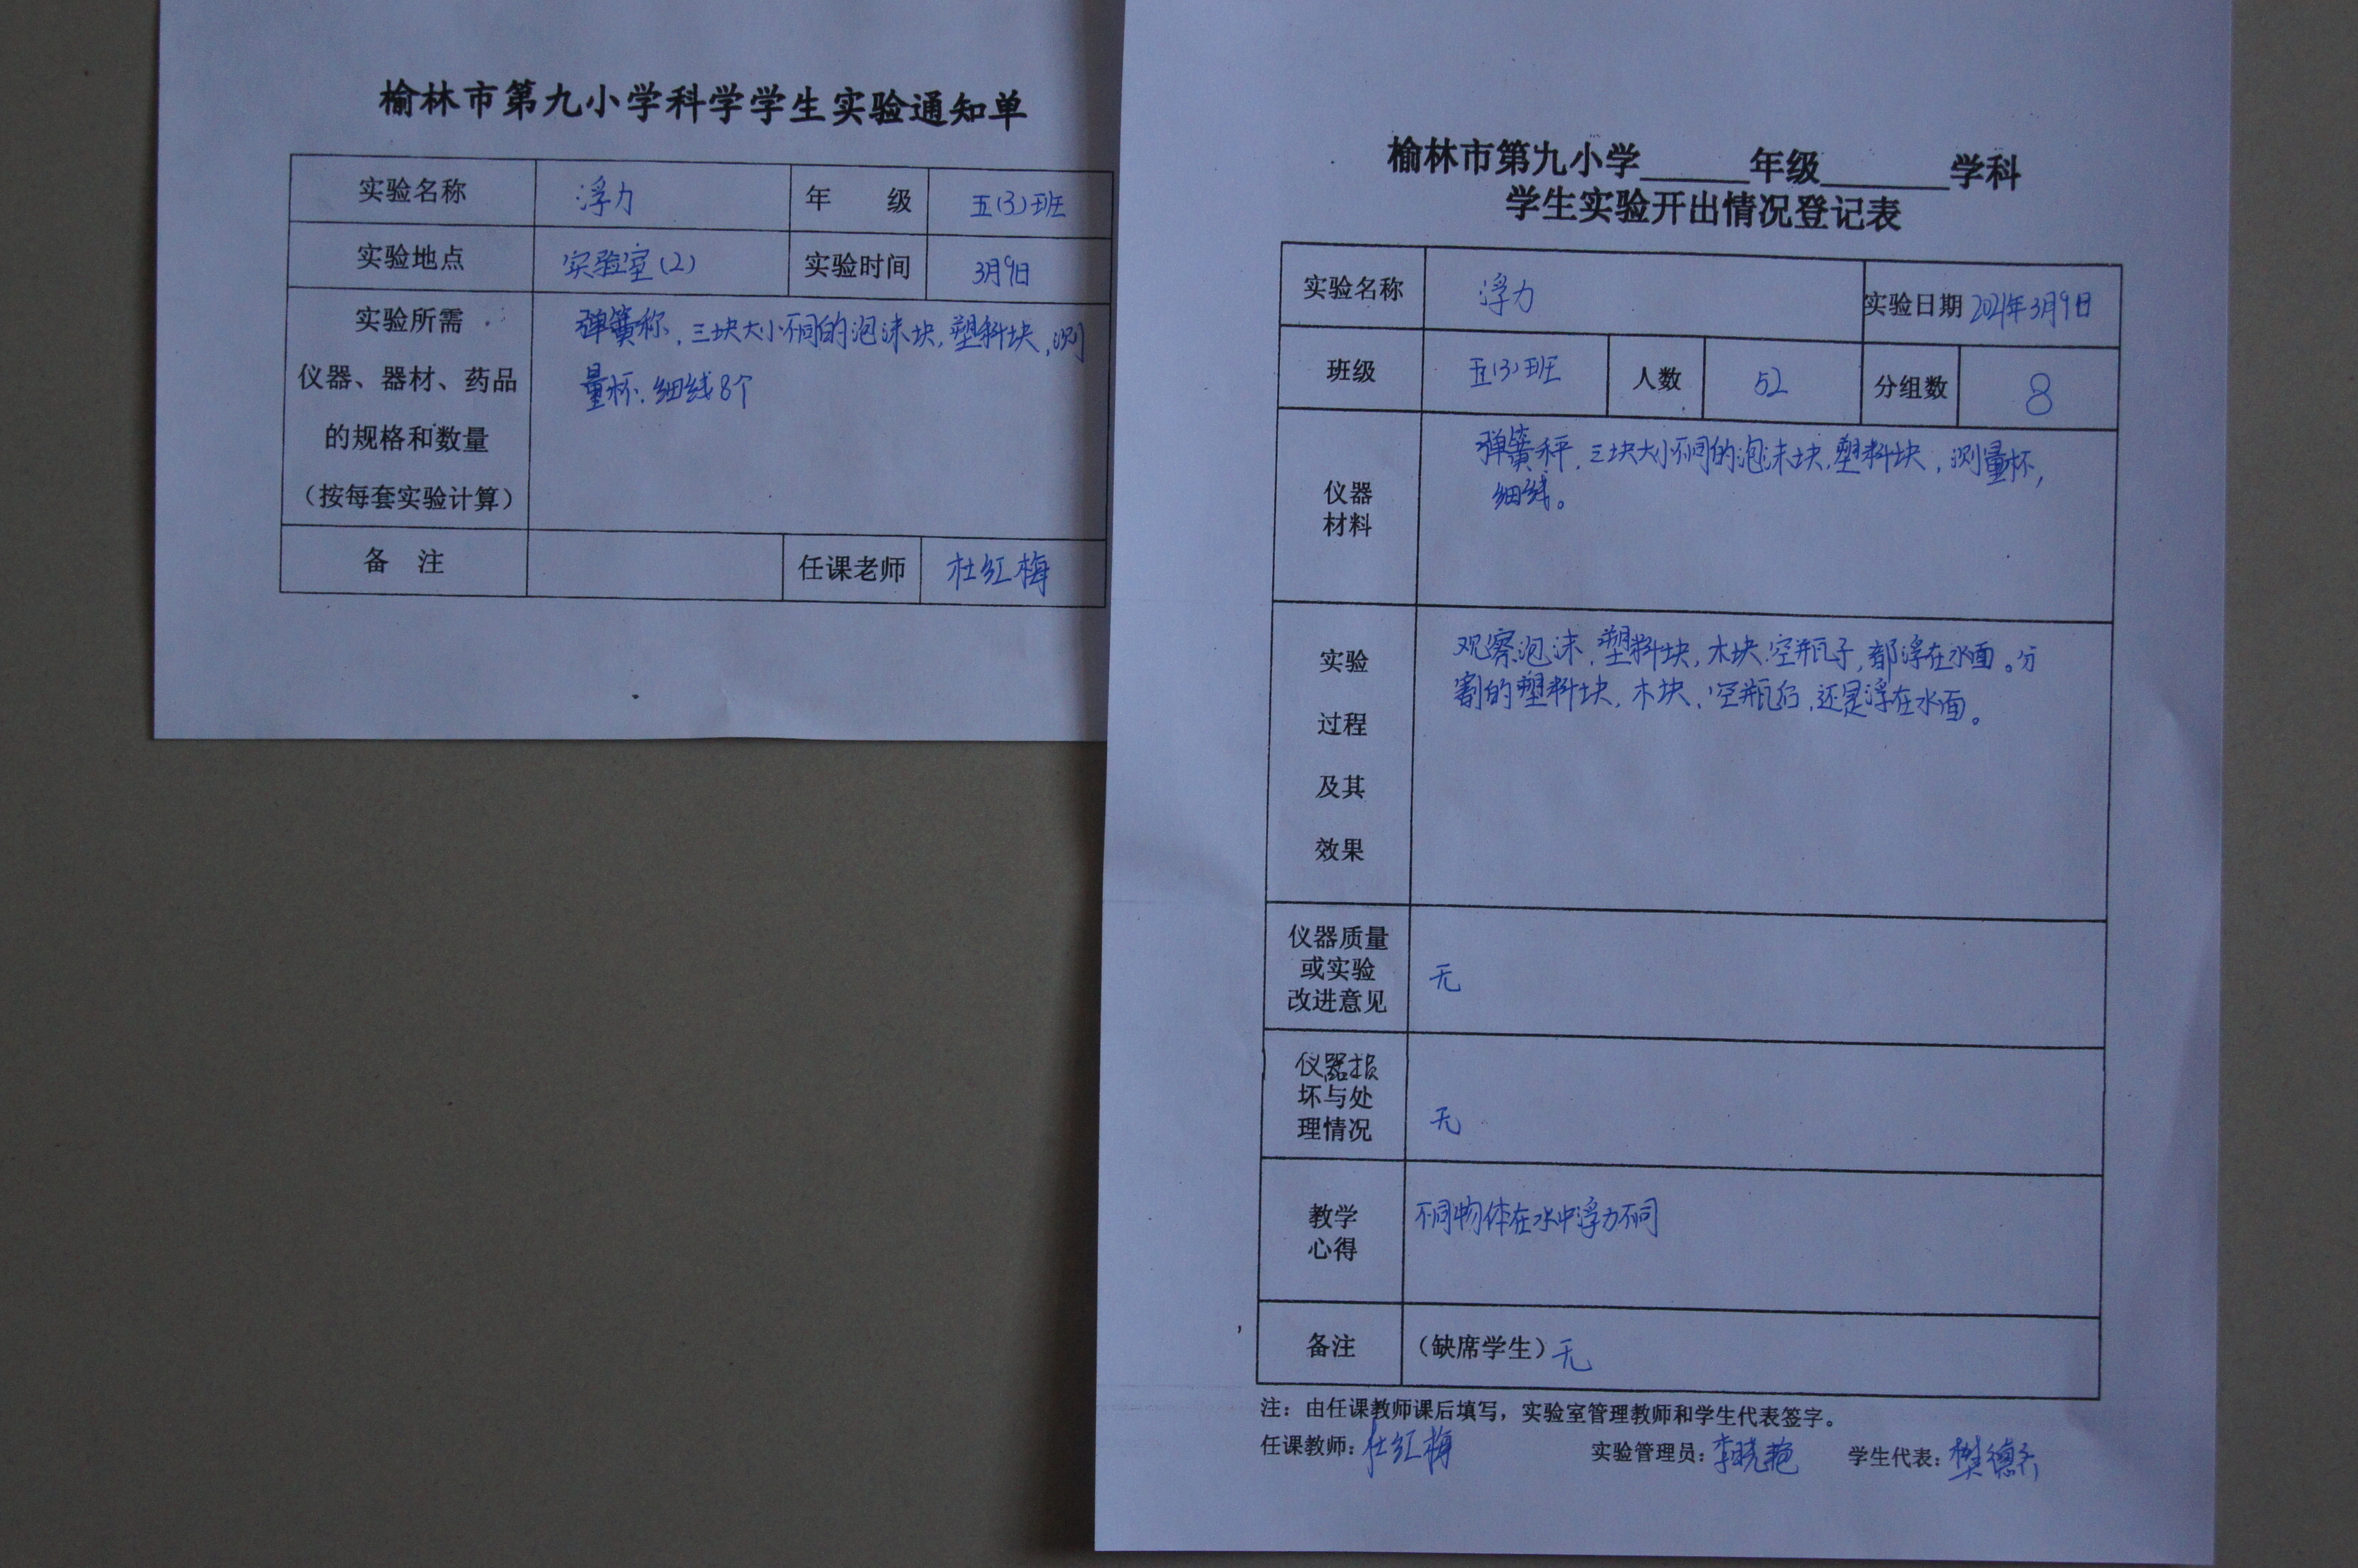 榆林市第九小学科学学生实验通知单
实验名称 浮力 年 级 五(3)班
实验地点 实验室(2) 实验时间 3月9日
实验所需
仪器、器材、药品
的规格和数量
(按每套实验计算)
弹簧称,三块大小不同的泡沫块,塑料块,测
量杯,细线8个
备 注 任课老师 杜红梅
榆林市第九小学______年级_______学科
学生实验开出情况登记表
实验名称 浮力 实验日期 2021年3月9日
班级 五(3)班 人数 52 分组数 8
仪器
材料
弹簧秤,三块大小不同的泡沫块,塑料块,测量杯,
细线。
实验
过程
及其
效果
观察泡沫,塑料块,木块,空瓶子,都浮在水面。分
割的塑料块,木块,空瓶后,还是浮在水面。
仪器质量
或实验
改进意见
无
仪器损
坏与处
理情况
无
教学
心得
不同物体在水中浮力不同
备注 (缺席学生)无
注:由任课教师课后填写,实验室管理教师和学生代表签字。
任课教师:杜红梅 实验管理员:李晓艳 学生代表:樊德